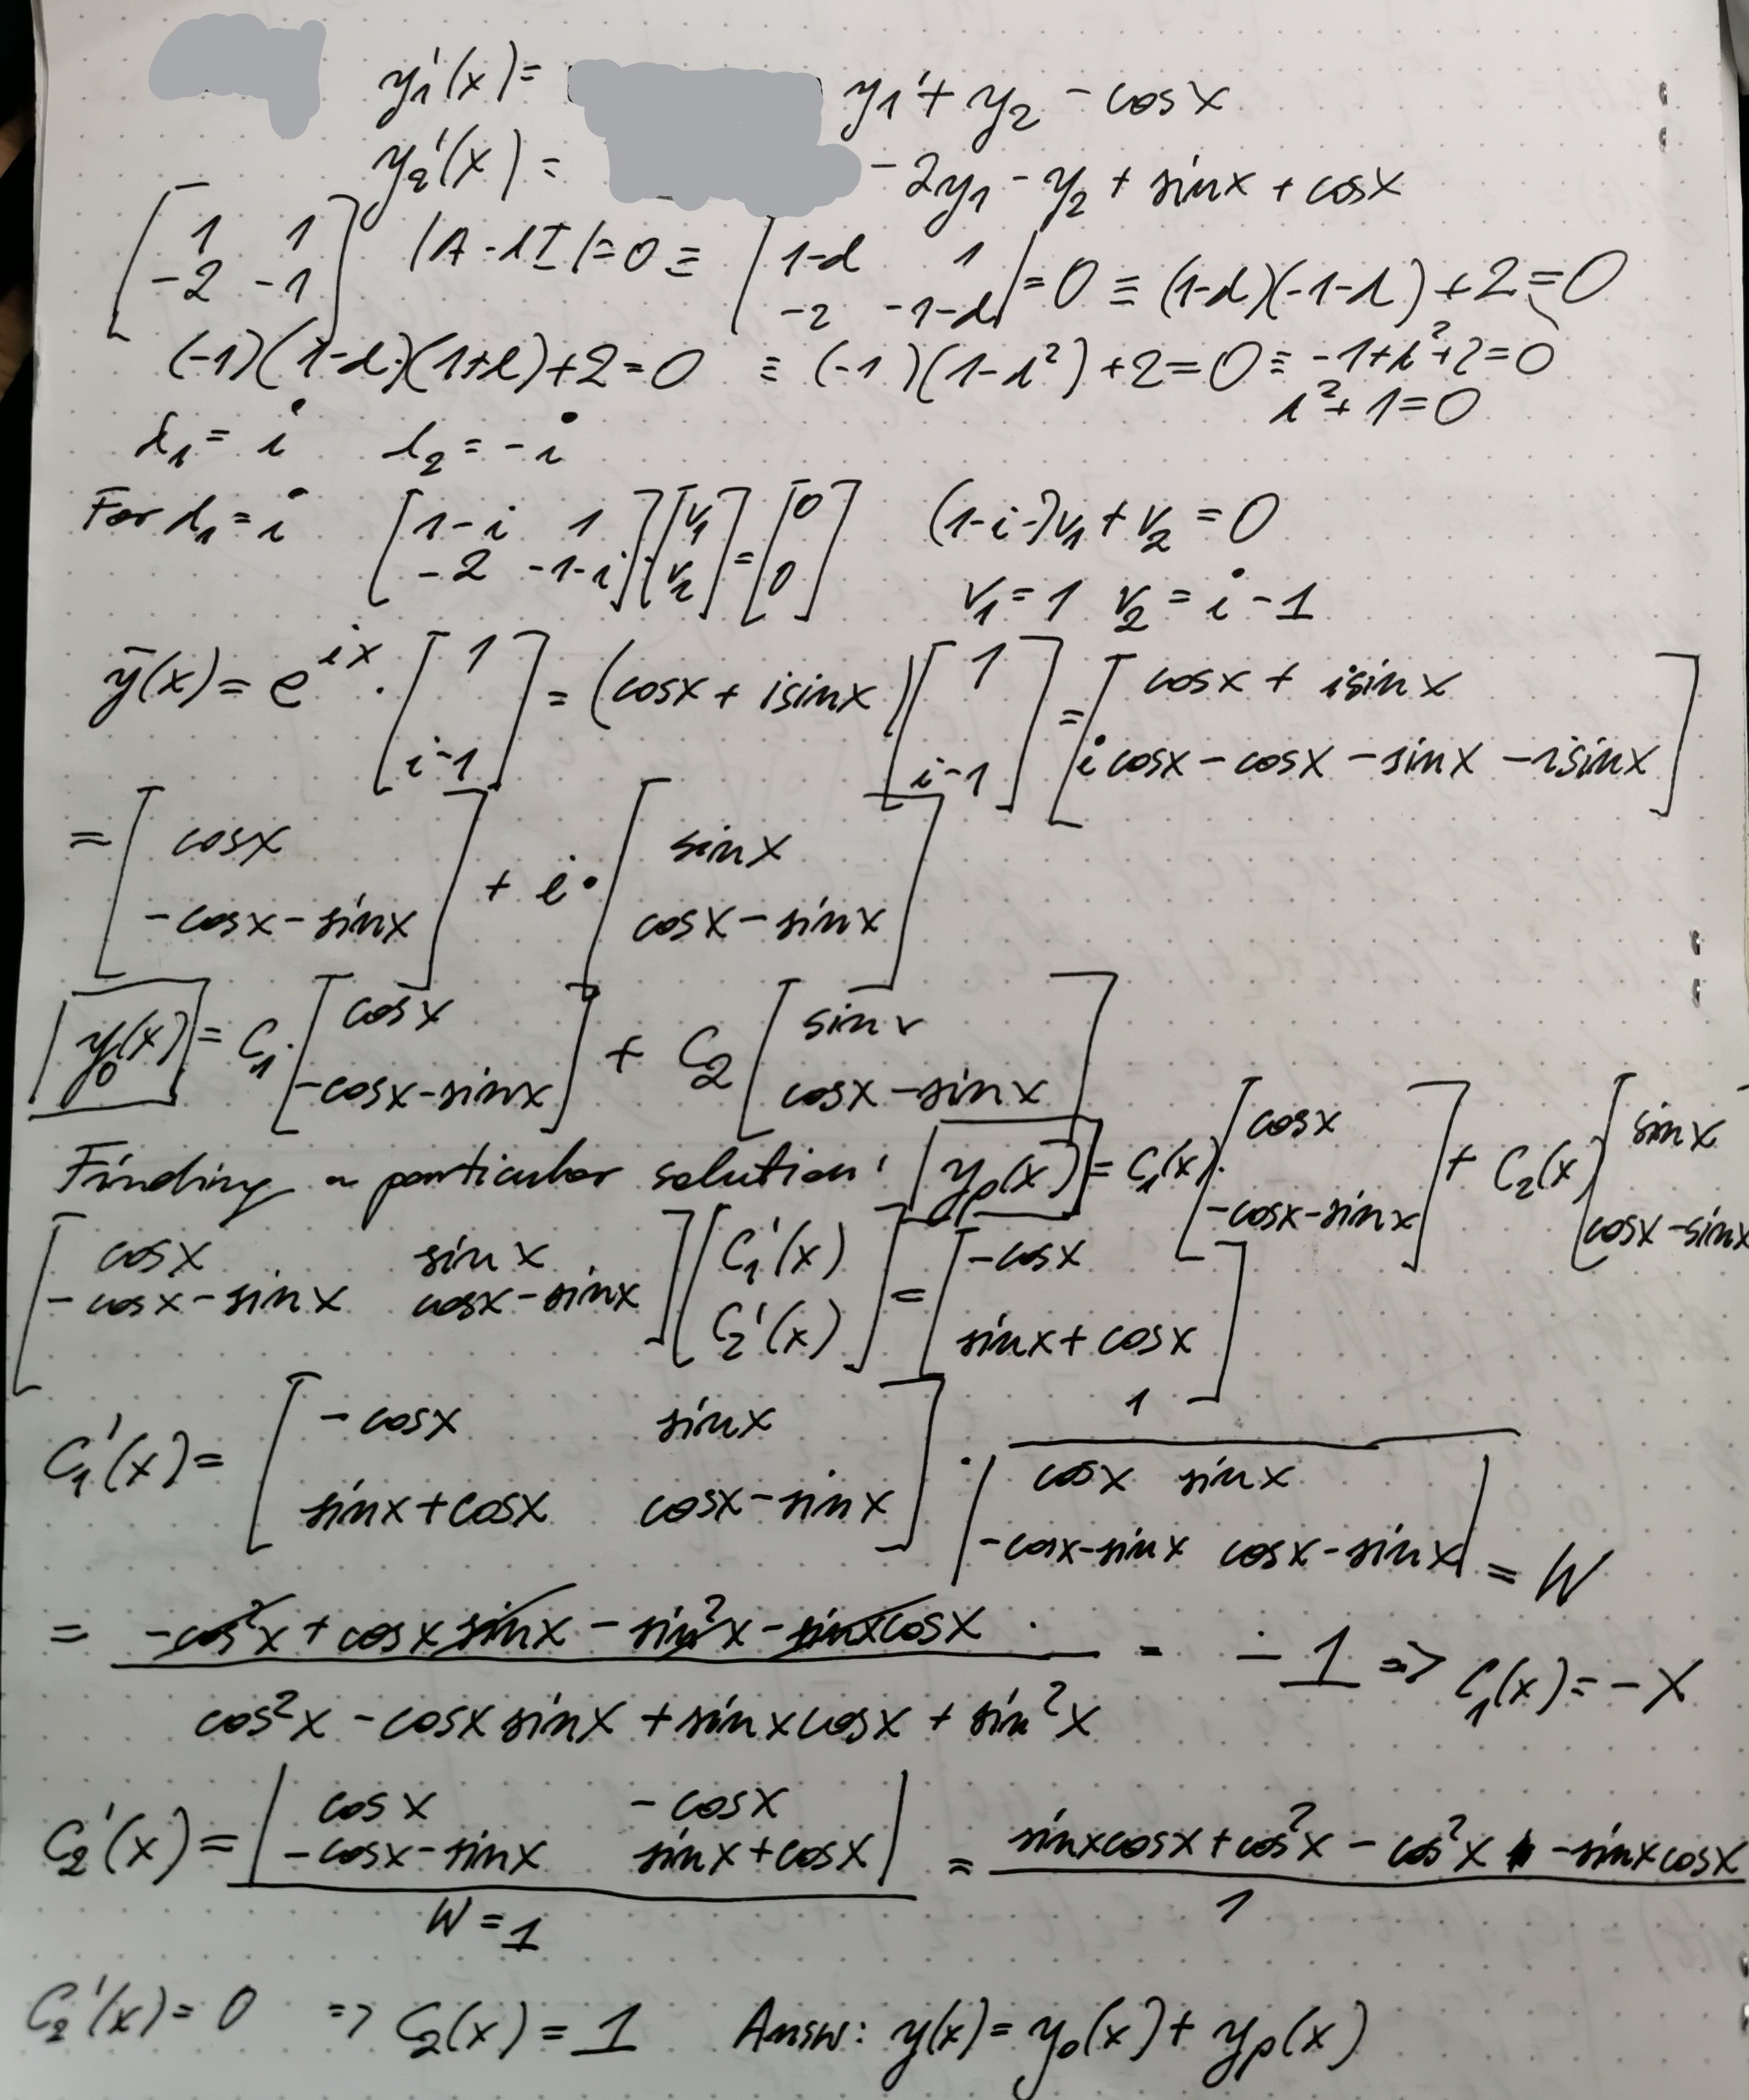 y₁'(x) = y₁ + y₂ - cosx
y₂'(x) = -2y₁ - y₂ + sinx + cosx
[1 1; -2 -1] |A - λI| = 0 ≡ |1-λ 1; -2 -1-λ| = 0 ≡ (1-λ)(-1-λ) + 2 = 0
(-1)(1-λ)(1+λ) + 2 = 0 ≡ (-1)(1-λ²) + 2 = 0 ≡ -1+λ²+2 = 0
λ²+1 = 0
λ₁ = i λ₂ = -i
For λ₁ = i [1-i 1; -2 -1-i]·[v₁; v₂] = [0; 0] (1-i)v₁ + v₂ = 0
v₁ = 1 v₂ = i-1
ȳ(x) = e^{ix} · [1; i-1] = (cosx + isinx)[1; i-1] = [cosx + isinx; icosx - cosx - sinx - isinx]
= [cosx; -cosx - sinx] + i·[sinx; cosx - sinx]
y₀(x) = C₁·[cosx; -cosx-sinx] + C₂[sinx; cosx-sinx]
Finding a particular solution: yₚ(x) = C₁(x)·[cosx; -cosx-sinx] + C₂(x)[sinx; cosx-sinx]
[cosx sinx; -cosx-sinx cosx-sinx][C₁'(x); C₂'(x)] = [-cosx; sinx+cosx]
C₁'(x) = [-cosx sinx; sinx+cosx cosx-sinx] · 1 / |cosx sinx; -cosx-sinx cosx-sinx| = W
= (-cos²x + cosxsinx - sin²x - sinxcosx) / (cos²x - cosxsinx + sinxcosx + sin²x) = -1 => C₁(x) = -x
C₂'(x) = |cosx -cosx; -cosx-sinx sinx+cosx| / W=1 = (sinxcosx + cos²x - cos²x - sinxcosx) / 1
C₂'(x) = 0 => C₂(x) = 1 Answ: y(x) = y₀(x) + yₚ(x)